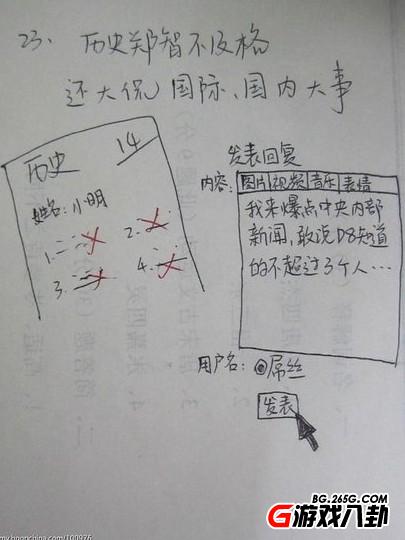 23、历史郑智不及格
还大侃国际、国内大事
历史 14
姓名:小明
1. 2.
3. 4.
发表回复
内容: 图片 视频 音乐 表情
我来爆点中央内部
新闻,敢说D8知道
的不超过3个人…
用户名: @屌丝
发表
BG.265G.COM
G游戏八卦